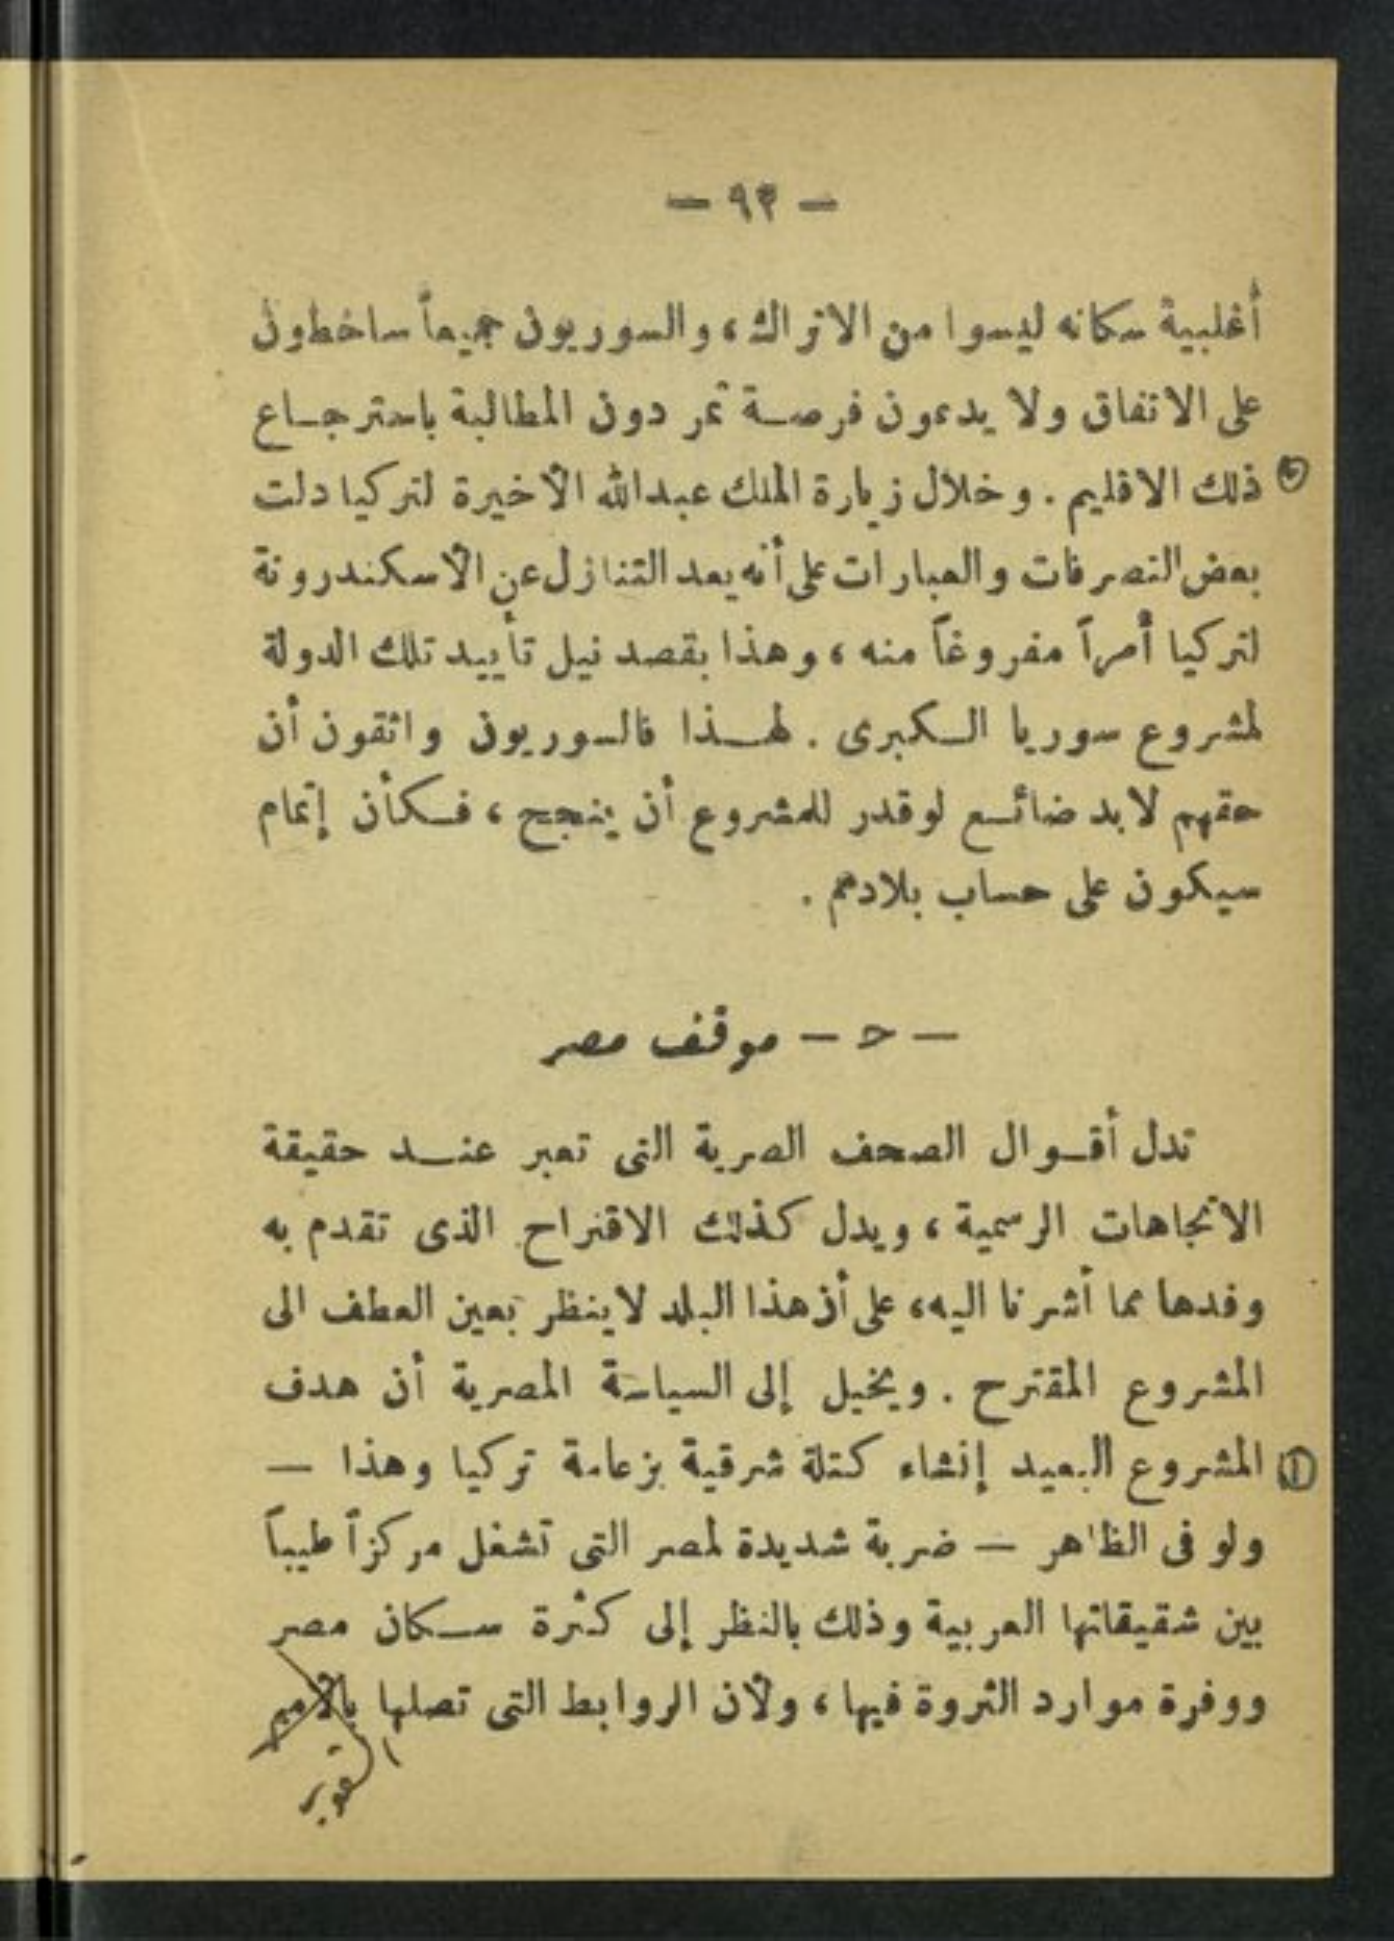 — ٩٣ —
أغلبية سكانه ليسوا من الاتراك، والسوريون جميعاً ساخطون
على الاتفاق ولا يدعون فرصة تمر دون المطالبة باسترجاع
ذلك الاقليم . وخلال زيارة الملك عبدالله الأخيرة لتركيا دلت
بعض التصرفات والعبارات على أنه يعد التنازل عن الأسكندرونة
لتركيا أمراً مفروغاً منه ، وهذا بقصد نيل تأييد تلك الدولة
لمشروع سوريا الكبرى . لهذا فالسوريون واثقون أن
حقهم لابد ضائع لو قدر للمشروع أن ينجح ، فكأن إتمام
سيكون على حساب بلادهم .
— ح — موقف مصر
تدل أقوال الصحف الصرية التى تعبر عند حقيقة
الاتجاهات الرسمية ، ويدل كذلك الاقتراح الذى تقدم به
وفدها مما أشرنا اليه، على أن هذا البلد لا ينظر بعين العطف الى
المشروع المقترح . ويخيل إلى السياسة المصرية أن هدف
١ المشروع البعيد إنشاء كتلة شرقية بزعامة تركيا وهذا —
ولو فى الظاهر — ضربة شديدة لمصر التى تشغل مركزاً طيباً
بين شقيقاتها العربية وذلك بالنظر إلى كثرة سكان مصر
ووفرة موارد الثروة فيها ، ولأن الروابط التى تصلها